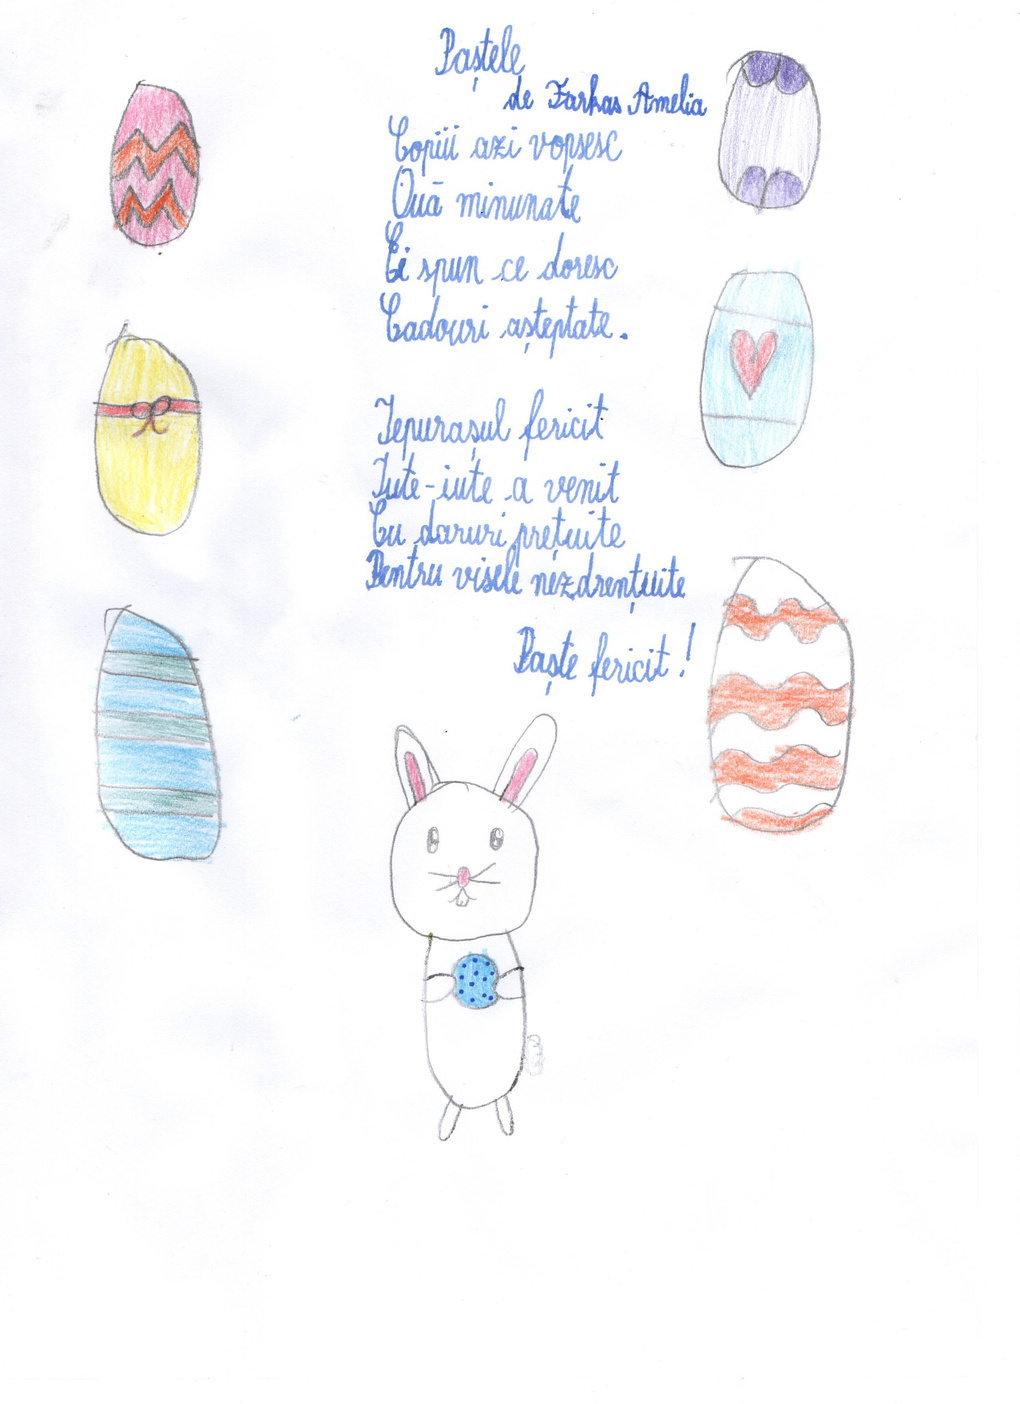 Paștele
de Farkas Amelia
Copiii azi vopsesc
Ouă minunate
Ei spun ce doresc
Cadouri așteptate.
Iepurașul fericit
Iute-iute a venit
Cu daruri prețuite
Pentru visele nezdrențuite
Paște fericit!